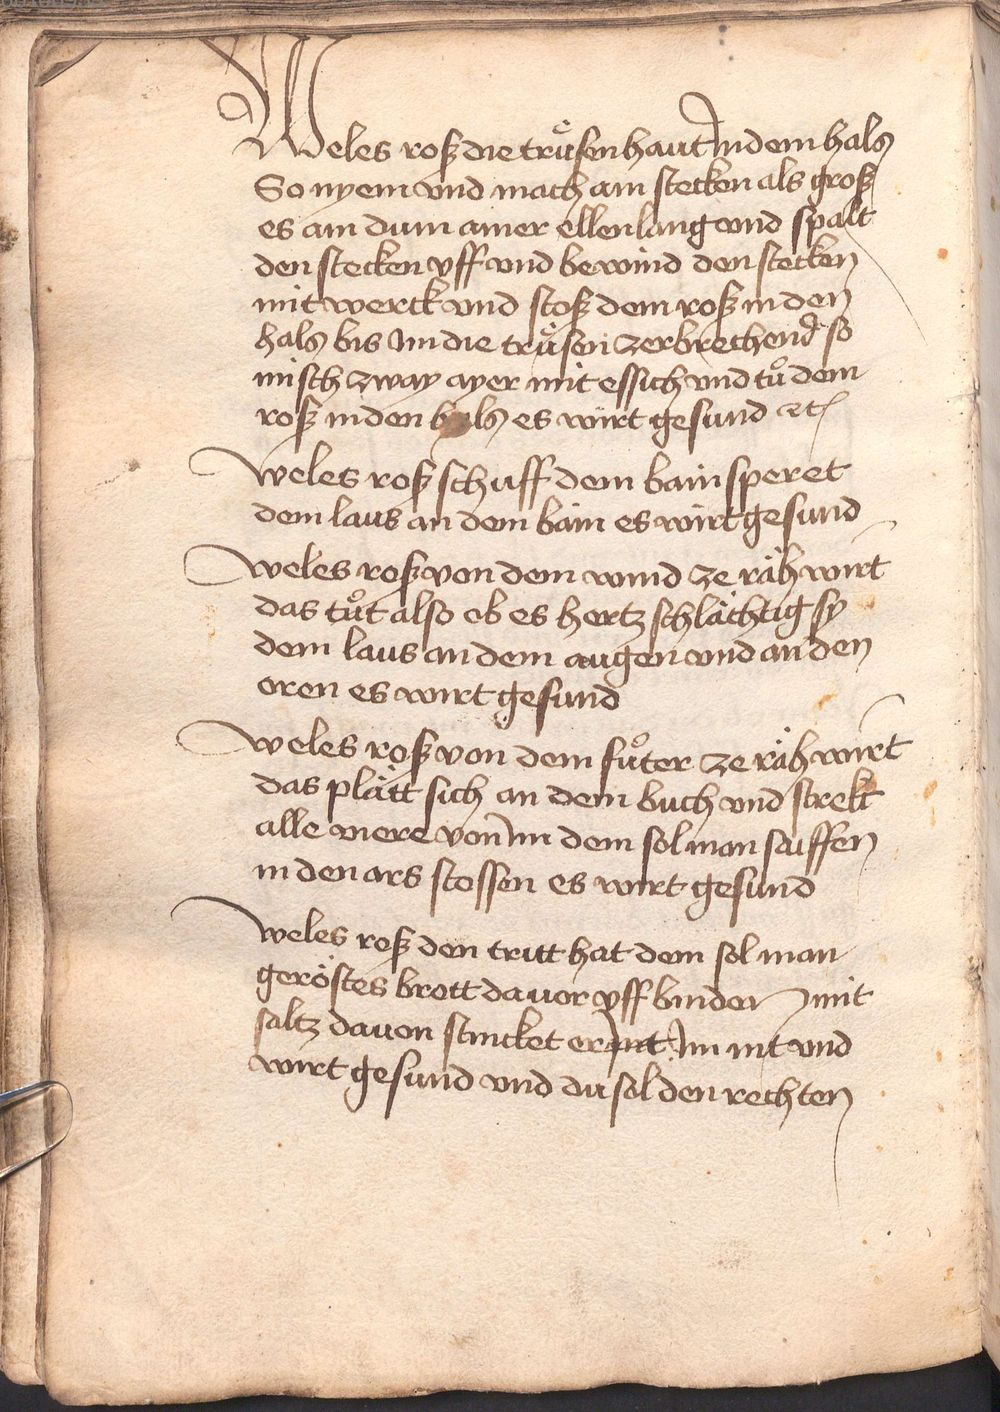 Weles roß die trüsen haut Jn dem hals
So nyem vnd mach ain stecken als groß
es ain dum ainer ellen lang vnd spalt
den stecken vff vnd bewind den stecken
mit werck vnd stoß dem roß in den
hals bis Jm die trüsen zerbrechend so
misch zway ayer mit essich vnd tů dem
roß in den hals es würt gesund etc
weles roß schuff dem bain speret
dem laus an dem bain es wirt gesund
weles roß von dem wind ze räh wirt
das tůt also ob es hertz schlächtig sy
dem laus an dem augen vnd an den
oren es wirt gesund
weles roß von dem fůter ze räh wirt
das plätt sich an dem buch vnd strekt
alle viere von Jm dem sol man saiffen
in den ars stossen es wirt gesund
weles roß den tritt hat dem sol man
geröstes brott dauor vff binden mit
saltz dauon stincket er Jm nit vnd
wirt gesund vnd du sol den rechten